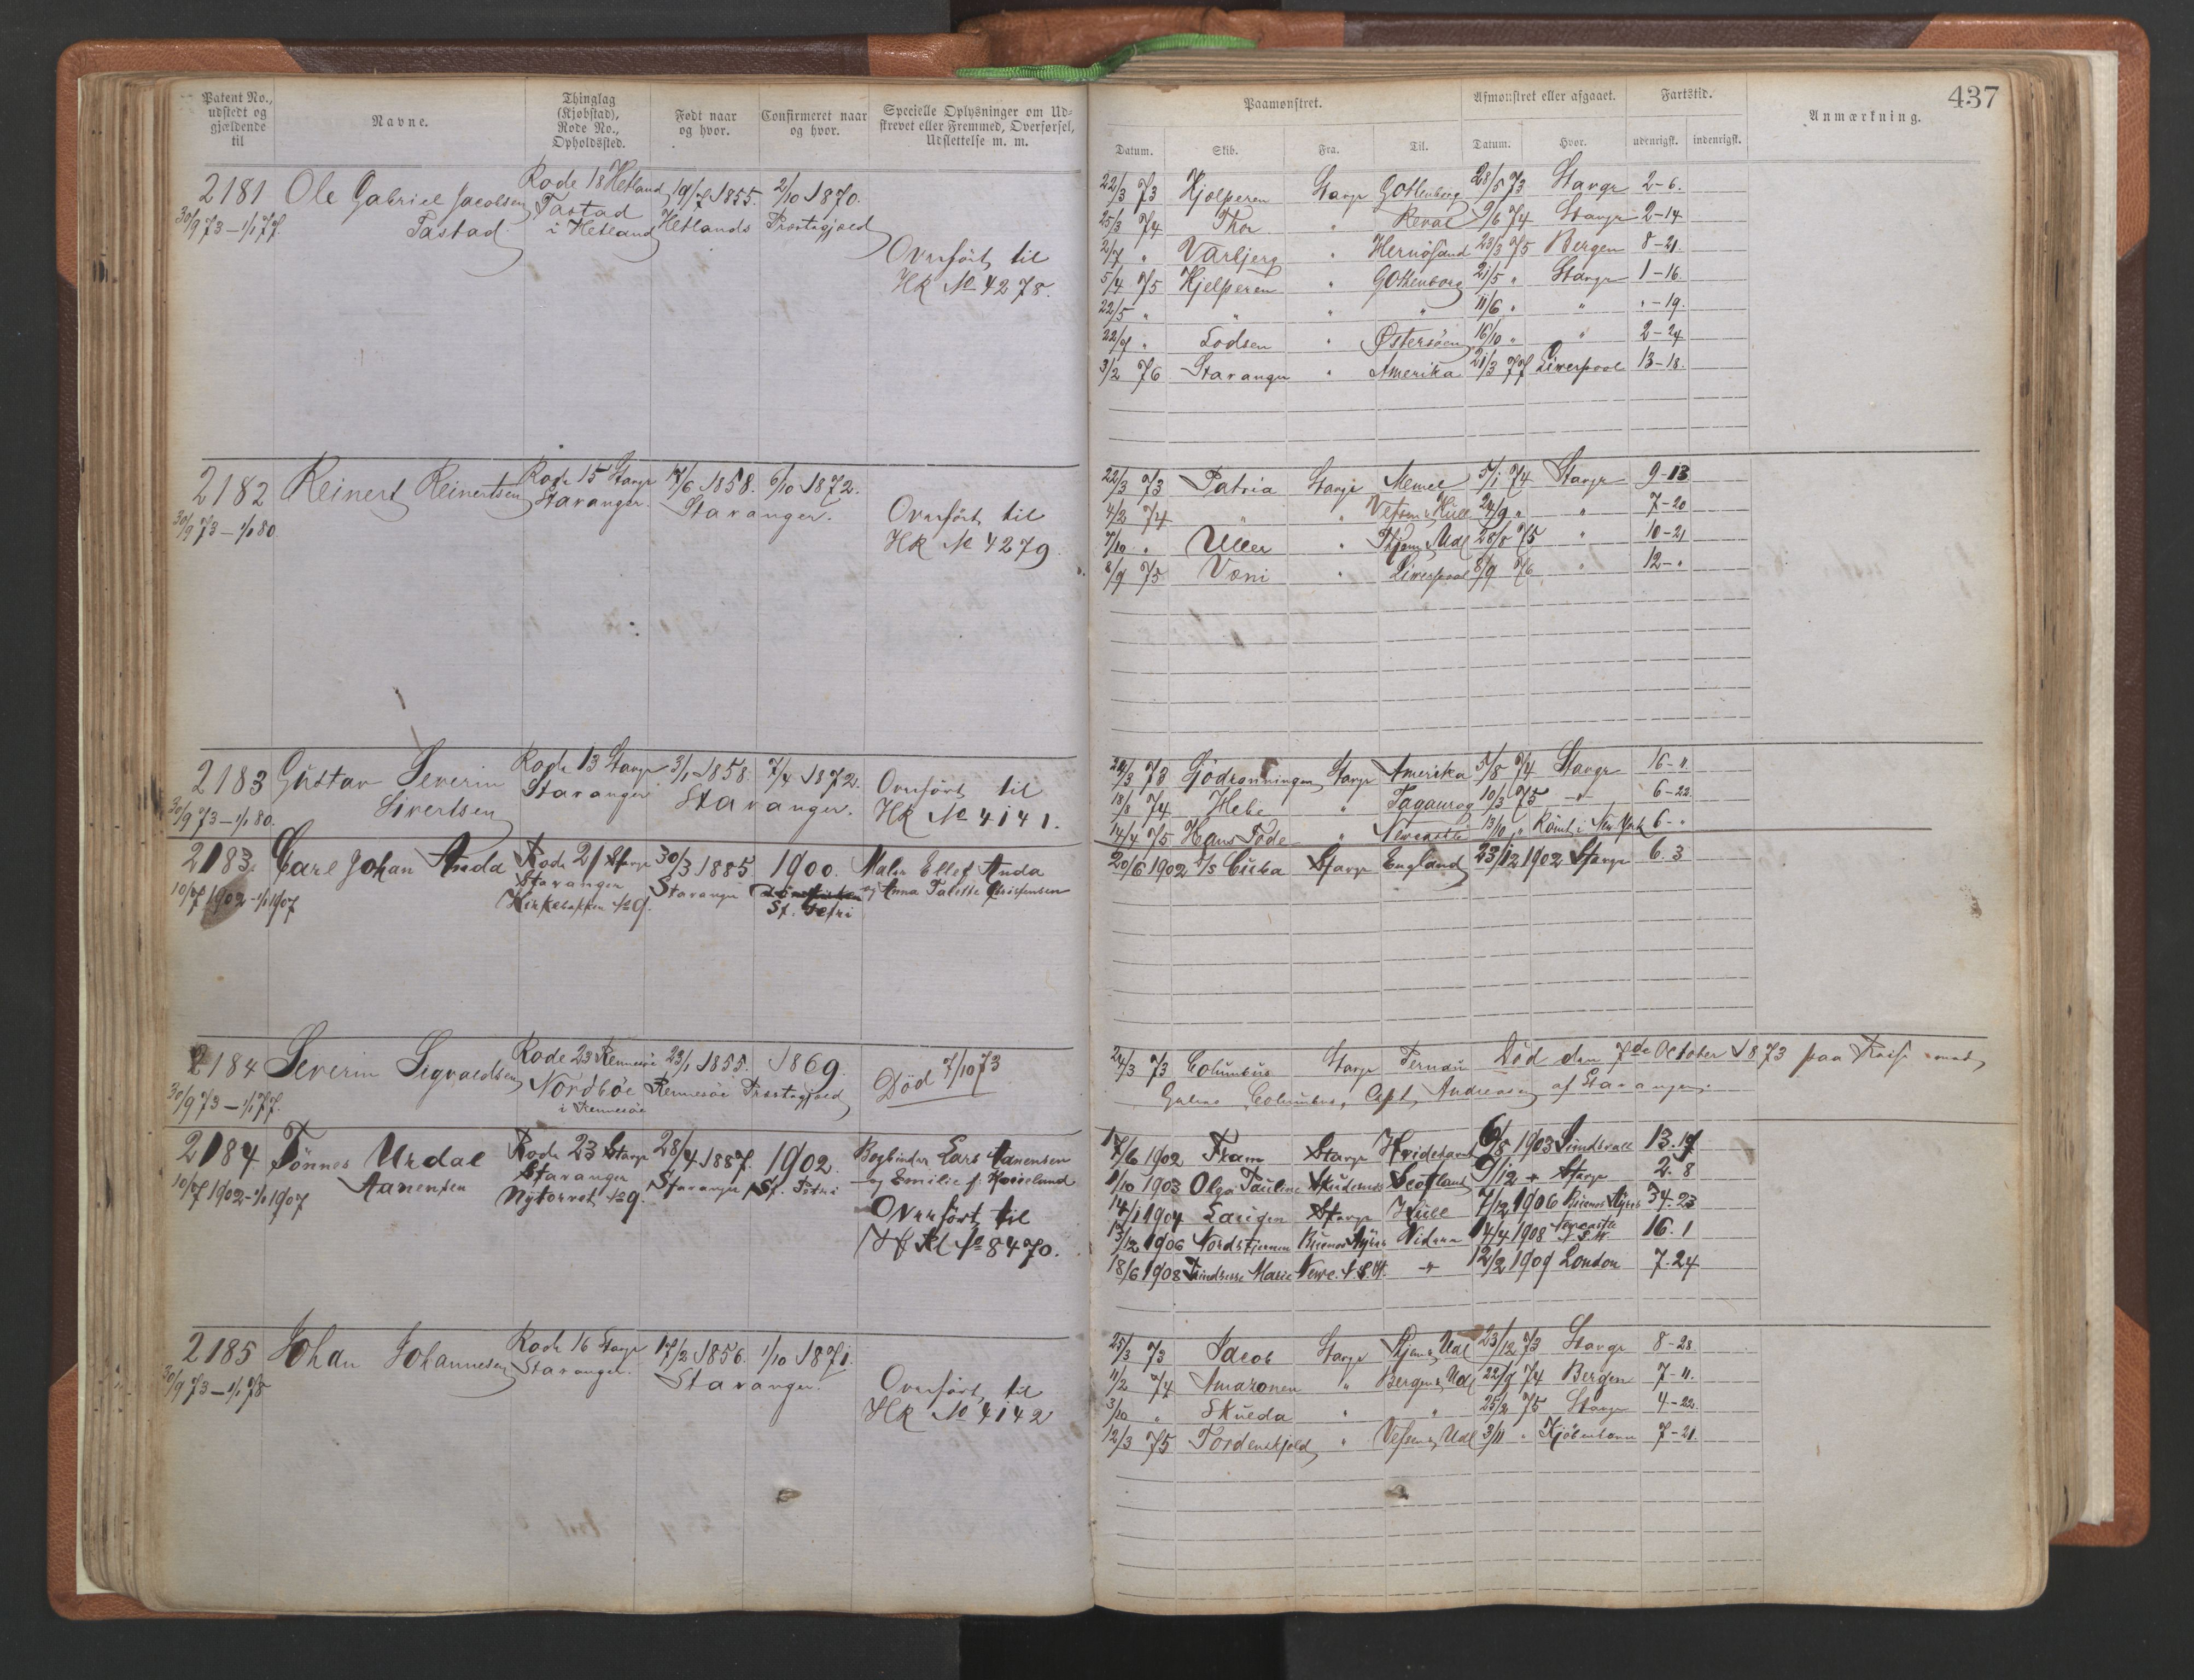 Patent No., udstedt og gjældende til
Navne.
Thinglag (Kjøbstad), Rode No., Opholdssted.
Født naar og hvor.
Confirmeret naar og hvor.
Specielle Oplysninger om Udskrevet eller Fremmed, Overførsel, Udslettelse m. m.
2181 Ole Gabriel Jacobsen Rode 18 Hetland 19/7 1855. 2/10 1870.
30/9 73 – 1/1 77. Tastad Tastad i Hetland Hetlands Præstegjæld
Overført til
HR No 4278.
2182 Reinert Reinertsen Rode 15 Stavgr 17/6 1858. 6/10 1872.
30/9 73 – 1/1 80 Stavanger. Stavanger.
Overført til
HR No 4279
2183 Gustav Severin Rode 13 Stavgr 3/1 1858. 7/4 1872.
30/9 73 – 1/1 80. Sivertsen Stavanger Stavanger.
Overført til
HR No 4141.
2183. Carl Johan Anda Rode 21 Stavgr 30/3 1885 1900. Maler Ellef Anda
10/7 1902 – 1/1 1907 Stavanger Stavanger og Anna Talette
Kirkebakken No 9. St. Petri
2184 Severin Sigvaldsen Rode 23 Rennesöe 23/1 1855. 1869.
30/9 73 – 1/1 77. Nordböe i Rennesöe Rennesöe Præstegjæld
Död 7/10 73
2184 Tönnes Urdal Rode 23 Stavgr 28/4 1887. 1902. Bogbinder Lars Aanensen
10/7 1902 – 1/1 1907 Aanensen Stavanger Stavanger St. Petri og Emilie f.
Nytorvet No 9.
Overført til
No 8470.
2185 Johan Johannesen Rode 16 Stavgr 17/2 1856. 1/10 1871.
30/9 73 – 1/1 78 Stavanger. Stavanger.
Overført til
HR No 4142
437
Paamønstret.
Afmønstret eller afgaaet.
Fartstid.
Anmærkning.
Datum. Skib. Fra. Til. Datum. Hvor. udenrigsk. indenrigsk.
22/3 73 Hjelperen Stavgr Gothenborg 28/5 73 Stavgr 2–6.
25/3 74 Thor " Reval 9/6 74 Stavgr 2–14
2/7 " Varbjerg " Hernösand 23/3 75 Bergen 8–21.
5/4 75 Hjelperen " Gothenborg 21/5 " Stavgr 1–16.
22/5 " " " " 11/6 " " "–19.
22/7 " Lodsen " Østersöen 16/10 " " 2–24
3/2 76 Stavanger " Amerika 21/3 77 Liverpool 13–18.
22/3 73 Patria Stavgr Memel 5/1 74 Stavgr 9–13
4/2 74 " " Hull 24/9 " " 7–20
7/10 " Uller " Udl 28/8 75 " 10–21
8/9 75 " Liverpool 8/9 76 " 12–"
22/3 73 Stavgr Amerika 5/8 74 Stavgr 16–"
18/8 74 Hebe " Taganrog 10/3 75 –"– 6–22.
14/4 75 Hans Tode " Newcastle 13/10 " Römt i New York 6–"
20/6 1902 S/S Cuba Stavgr England 23/12 1902 Stavgr 6.3
24/3 73 Columbus Stavgr Pernau Död den 7de October 1873 paa Reise med
Galeas Columbus, Capt Andreasen af Stavanger.
17/6 1902 Fram Stavgr 6/8 1903 Sundsvall 13.19
1/10 1903 Olga Pauline Skudesnes Scotland 9/12 " Stavgr 2.8
14/1 1904 Laugen Stavgr Hull 7/12 1906 Buenos Ayres 34.23
13/12 1906 Nordstjernen Buenos Ayres Videre 14/4 1908 Newcastle N.S.W. 16.1
18/6 1908 Marie Newc. N.S.W. –"– 12/2 1909 London 7.24
25/3 73 Jacob Stavgr Udl 23/12 73 Stavgr 8–28.
11/2 74 Amazonen " Bergen & Udl 22/9 74 Bergen 7–11.
3/10 " Skulda " " 25/2 75 Stavgr 4–22.
12/3 75 Tordenskjold " Udl 3/11 " Kjöbenhavn 7–21.